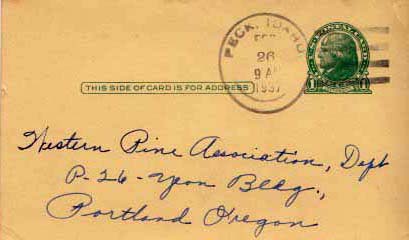 PECK, IDAHO
FEB
26
9 AM
1937
U.S. POSTAL CARD
1
THIS SIDE OF CARD IS FOR ADDRESS
Western Pine Association, Dept
P-26-Yeon Bldg.,
Portland Oregon